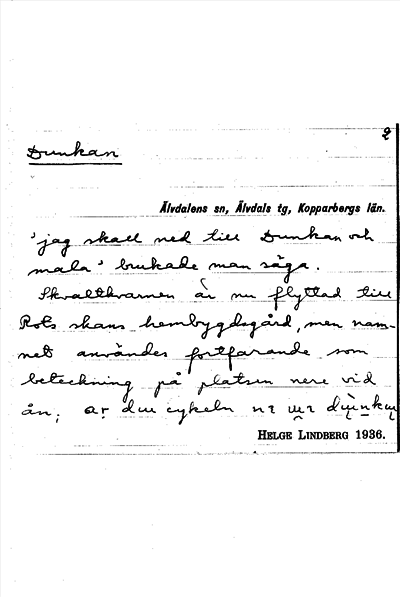 2
Dunkan
Älvdalens sn, Älvdals tg, Kopparbergs län.
'jag skall ned till Dunkan och
mala' brukade man säga.
Skvaltkvarnen är nu flyttad till
Rots skans hembygdsgård, men nam-
net användes fortfarande som
beteckning på platsen nere vid
ån; ar du cykeln
HELGE LINDBERG 1936.